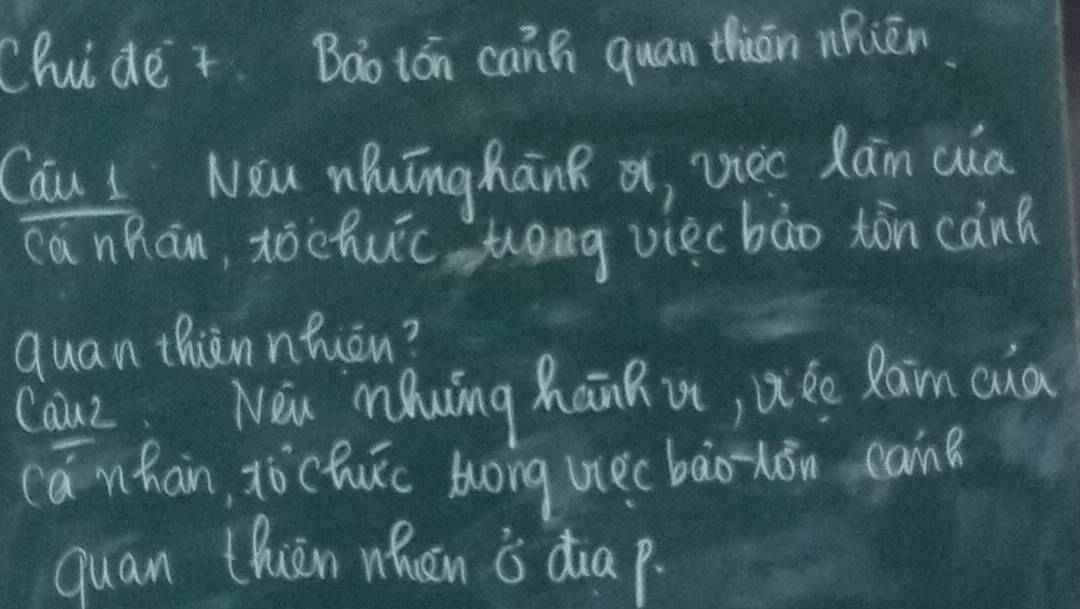 Chủ đề 7. Bảo tồn cảnh quan thiên nhiên.
Câu 1 Nêu những hành vi, việc làm của
cá nhân, tổ chức trong việc bảo tồn cảnh
quan thiên nhiên?
Câu 2. Nêu những hành vi, việc làm của
cá nhân, tổ chức trong việc bảo tồn cảnh
quan thiên nhiên ở địa p.